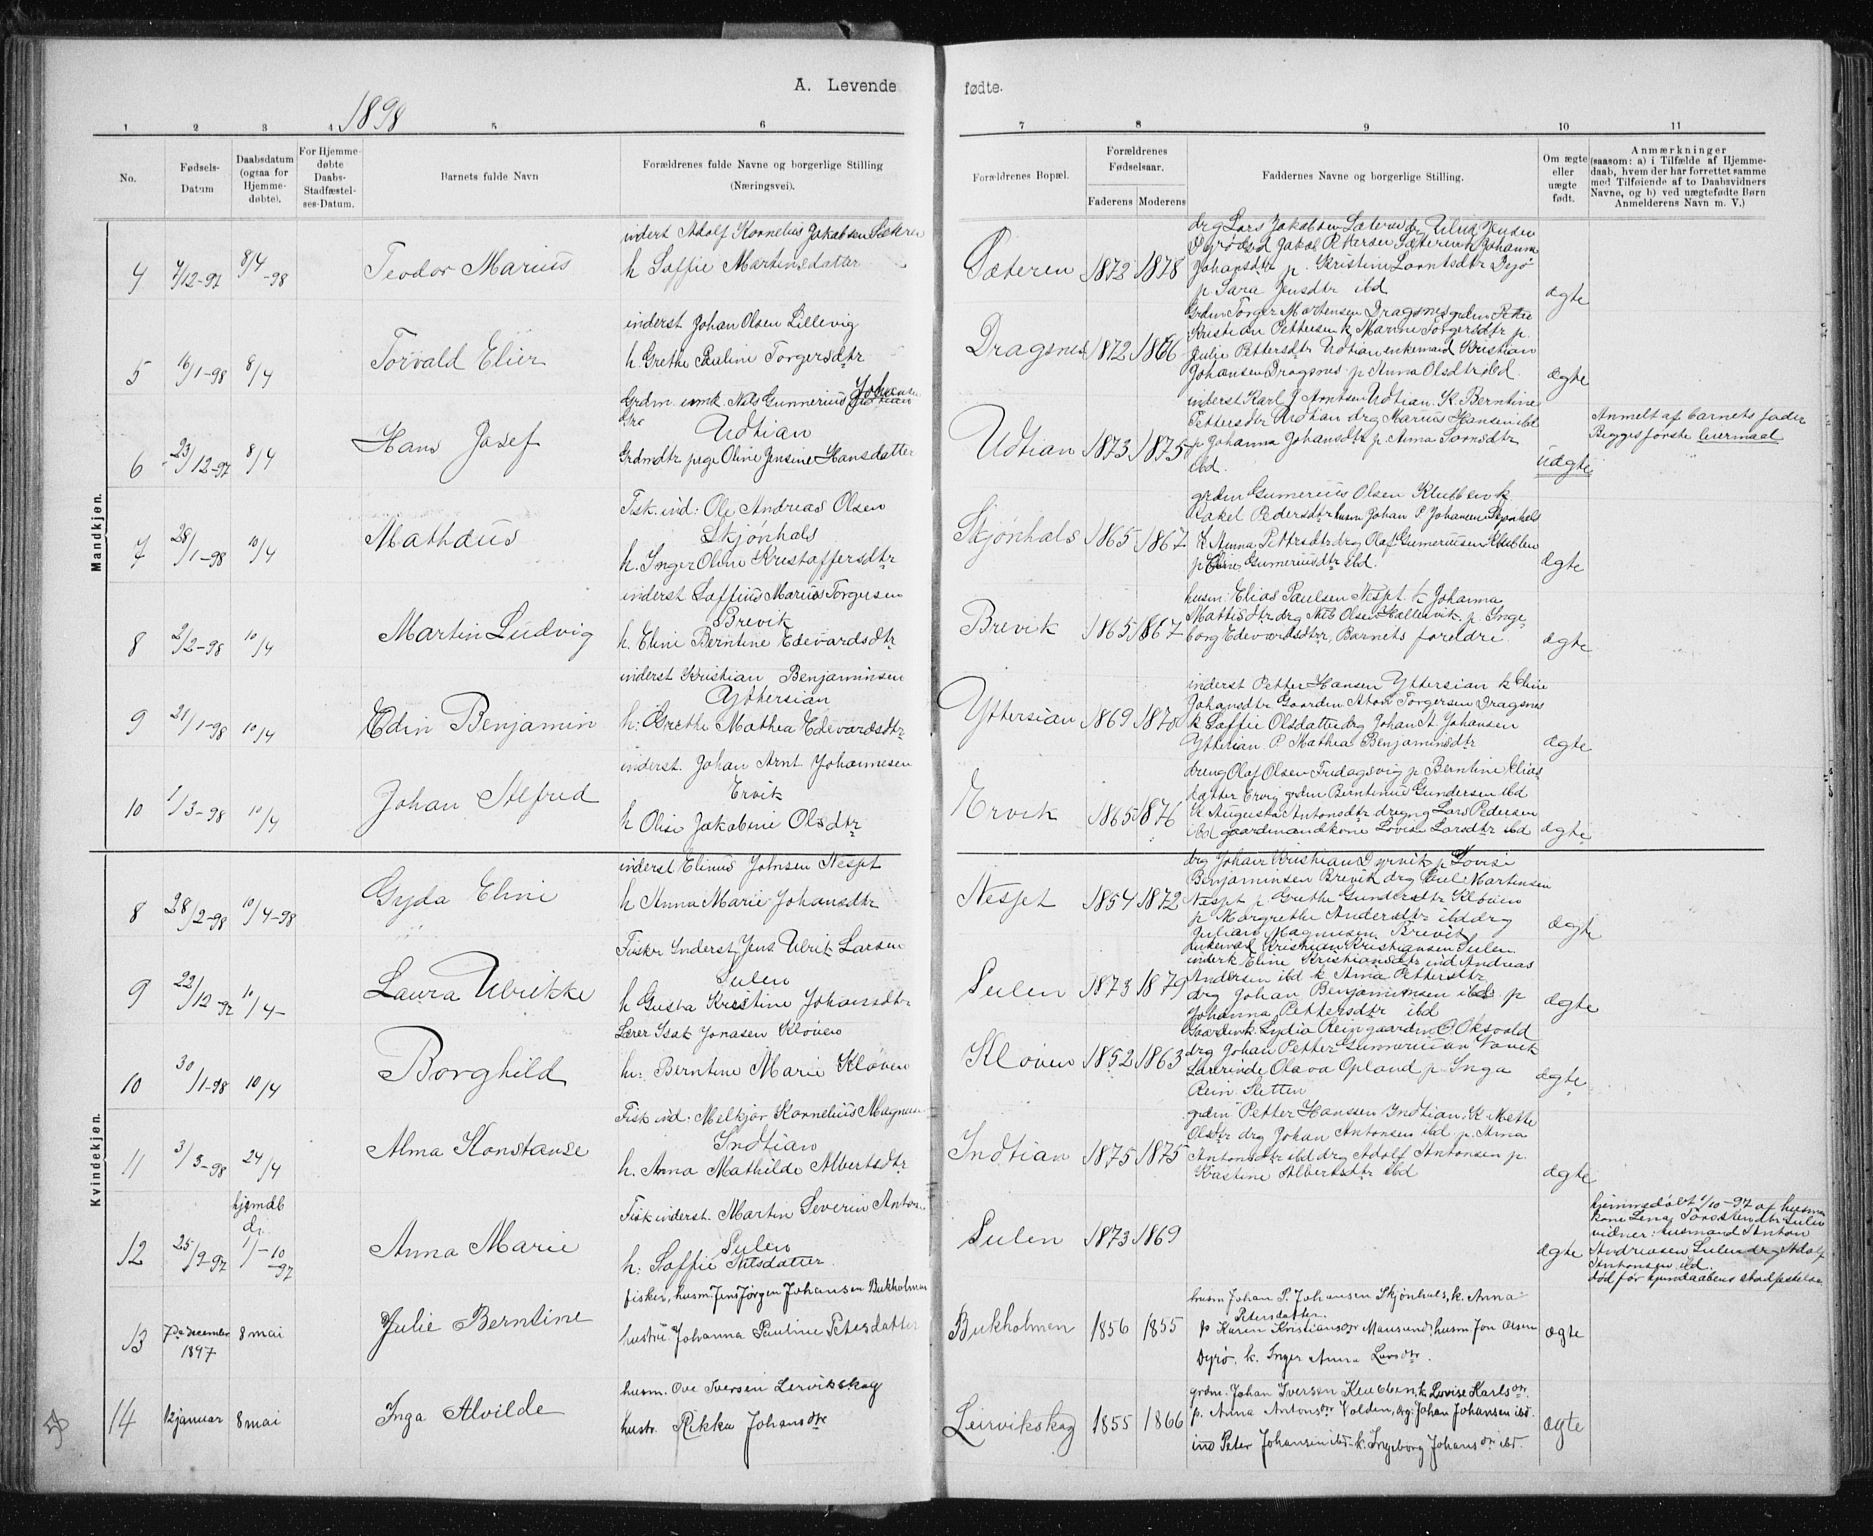 A. Levende
fødte.
1898
1 2 3 4 5 6
7 8 9 10 11
No.
Fødsels-
Datum
Daabsdatum
(ogsaa for
Hjemme-
døbte).
For Hjemme-
døbte
Daabs-
Stadfæstel-
ses-Datum.
Barnets fulde Navn
Forældrenes fulde Navne og borgerlige Stilling
(Næringsvei).
Forældrenes Bopæl.
Forældrenes
Fødselsaar.
Faderens Moderens
Faddernes Navne og borgerlige Stilling.
Om ægte
eller
uægte
født.
Anmærkninger
(saasom: a) i Tilfælde af Hjemme-
daab, hvem der har forrettet samme
med Tilføiende af to Daabsvidners
Navne, og b) ved uægtefødte Børn
Anmelderens Navn m. V.)
Mandkjøn.
4 7/12-97 8/4-98 Teodor Marius
indert Adolf Kornelius Jakobsen Sæteren
h Saffie Martinsdatter
Sæteren 1872 1878
drg Lars Jakobsen Sæteren
Johansdtr p. Kristine
p Sara Jensdtr ibd
ægte
5 16/1-98 8/4 Torvald Elier
inderst Johan Olsen Lillevig
h. Grethe Pauline Torgersdtr
Dragsnes 1872 1866
Grdm Torger Mortensen Dragsnes
Kristian Pettersen k Marine Torgersdtr p.
Julie Pettersdtr Udtian enkemand Kristian
Johansen Dragsnes p Anna Olsdtr ibd.
ægte
6 23/12-97 8/4 Hans Josef
Grdm enmk. Nils Gunnerius Johansen
Udtian
Grdmdtr pige Oline Jensine Hansdatter
Udtian 1873 1875
inderst Karl J Arntsen Udtian K. Berntine
Pettersdtr Udtian drg Marius Hansen ibd
p Johanna Johansdtr p Anna
ibd.
uægte
Anmelt af barnets fader
Begges første leiermaal
7 28/1-98 10/4 Mathæus
Fisk. ind: Ole Andreas Olsen
Skjønhals
h. Inger Oline Kristaffersdtr
Skjønhals 1865 1867
grdm Gumerius Olsen Klubben k
Rakel Pedersdtr husm Johan P. Johansen Skjønhals
k Anna Pettrsdtr drg Olaf Gumeriusen Klubben
p Gumeriusdtr ibd.
ægte
8 2/2-98 10/4 Martin Ludvig
inderst Saffius Marius Torgersen
Brevik
h. Eline Berntine Edevardsdtr
Brevik 1865 1867
husm: Elias Paulsen Nesset k Johanna
Mattisdtr drg Nils Olsen Kallevik p Inge-
borg Edevardsdtr, Barnets foreldre.
ægte
9 21/1-98 10/4 Edin Benjamin
inderst Kristian Benjaminsen
Yttersian
h: Grethe Mathea Edevardsdtr
Yttersian 1869 1870
inderst Petter Hansen Yttersian k Eline
Johansdtr Gaardm Torgersen Dragsnes
k Saffie Olsdatter drg Johan A. Johansen
Ytterian P Mathea Benjaminsdtr
ægte
10 1/3-98 10/4 Johan Alfred
inderst. Johan Arnt Johannesen
Ervik
h Olise Jakobine Olsdtr
Ervik 1865 1876
dreng Olaf Olsen Fredagsvig p Berntine Elias
datter Ervig grdm Berntinus Gundersen ibd
K Augusta Antonsdtr dreng Lars Pedersen
ibd gaardmandkone Lovise Larsdtr ibd
ægte
Kvindekjøn.
8 28/2-98 10/4-98 Gyda Eline
inderst Elinus Johnsen Nesset
h Anna Marie Johansdtr
Nesset 1854 1872
drg Johan Kristian Dyrvik p Lovise
Benjaminsen Brevik drg Martinsen
Nesset p Grethe Gundersdtr Kløven
p Margrethe Andersdtr ibd drg
Julian Magnusen Brevik
ægte
9 22/12-97 10/4- Laura Ulrikke
Fisker Inderst Jens Ulrik Larsen
Sulen
h Gusta Kristine Johansdtr
Sulen 1873 1879
Enkemd Kristian Kristiansen Sulen
inderk Eline Kristiansdtr ind Andreas
Andersen ibd k Anna Pettersdtr
drg Johan Benjaminsen ibd p
Johanna Pettersdtr ibd
ægte
10 30/1-98 10/4 Borghild
Lærer Isak Jonasen Kløven
hu: Berntine Marie Kløven
Kløven 1852 1863
Gaardmk. Lydia Rein gaardm O Oksvold
drg Johan Petter Gunneriusen
Lærerinde Olava Opland p. Inga
Rein Sletten
ægte
11 3/3-98 24/4 Alma Konstanse
Fisk ind: Melkjør Kornelius Magnus
Indtian
h. Anna Mathilde Albertsdtr
Indtian 1875 1875
grdm Petter Hansen Indtian. K Mette
Olsdtr drg Johan Antonsen ibd p. Anna
Antonsdtr ibd drg Adolf Antonsen p.
Kristine Albertsdtr ibd
ægte
12 25/9-97 hjemdb
1/-10-97 Anna Marie
Fisk inderst. Martin Severin Anton
Sulen
h: Saffie Nilsdatter
Sulen 1873 1869
ægte
hjemmedøbt 1/10-97 af husm
kone Lena Torestendtr Sulen
vidner: husmand Anton
Andreasen Sulen drg Adolf
Antonsen ibd.
død før hjemdaabens stadfestelse
13 7de december
1897 8 mai Julie Berntine
fisker, husm. Jens Jørgen Johansen Bukholmen
hustru Johanna Pauline Petersdatter
Bukholmen 1856 1855
husm Johan P. Johansen Skjønhals, k. Anna
Petersdatter
p Karen Kristiansdr Mausund, husm Jon Olsen
Dyrø. k. Inger Anna Larsdtr.
ægte
14 12 januar 8 mai Inga Alvilde
husm. Ove Iversen Lervikskog
hustr. Rikka Johansdtr
Leirvikskog 1855 1866
grdm. Johan Iversen Klubben, k Lovise Karlsdr
p. Anna Antonsdtr Volden, drg: Johan Johansen ibd.
ind Peter Johansen ibd - k. Ingeborg Johansdr ibd.
ægte